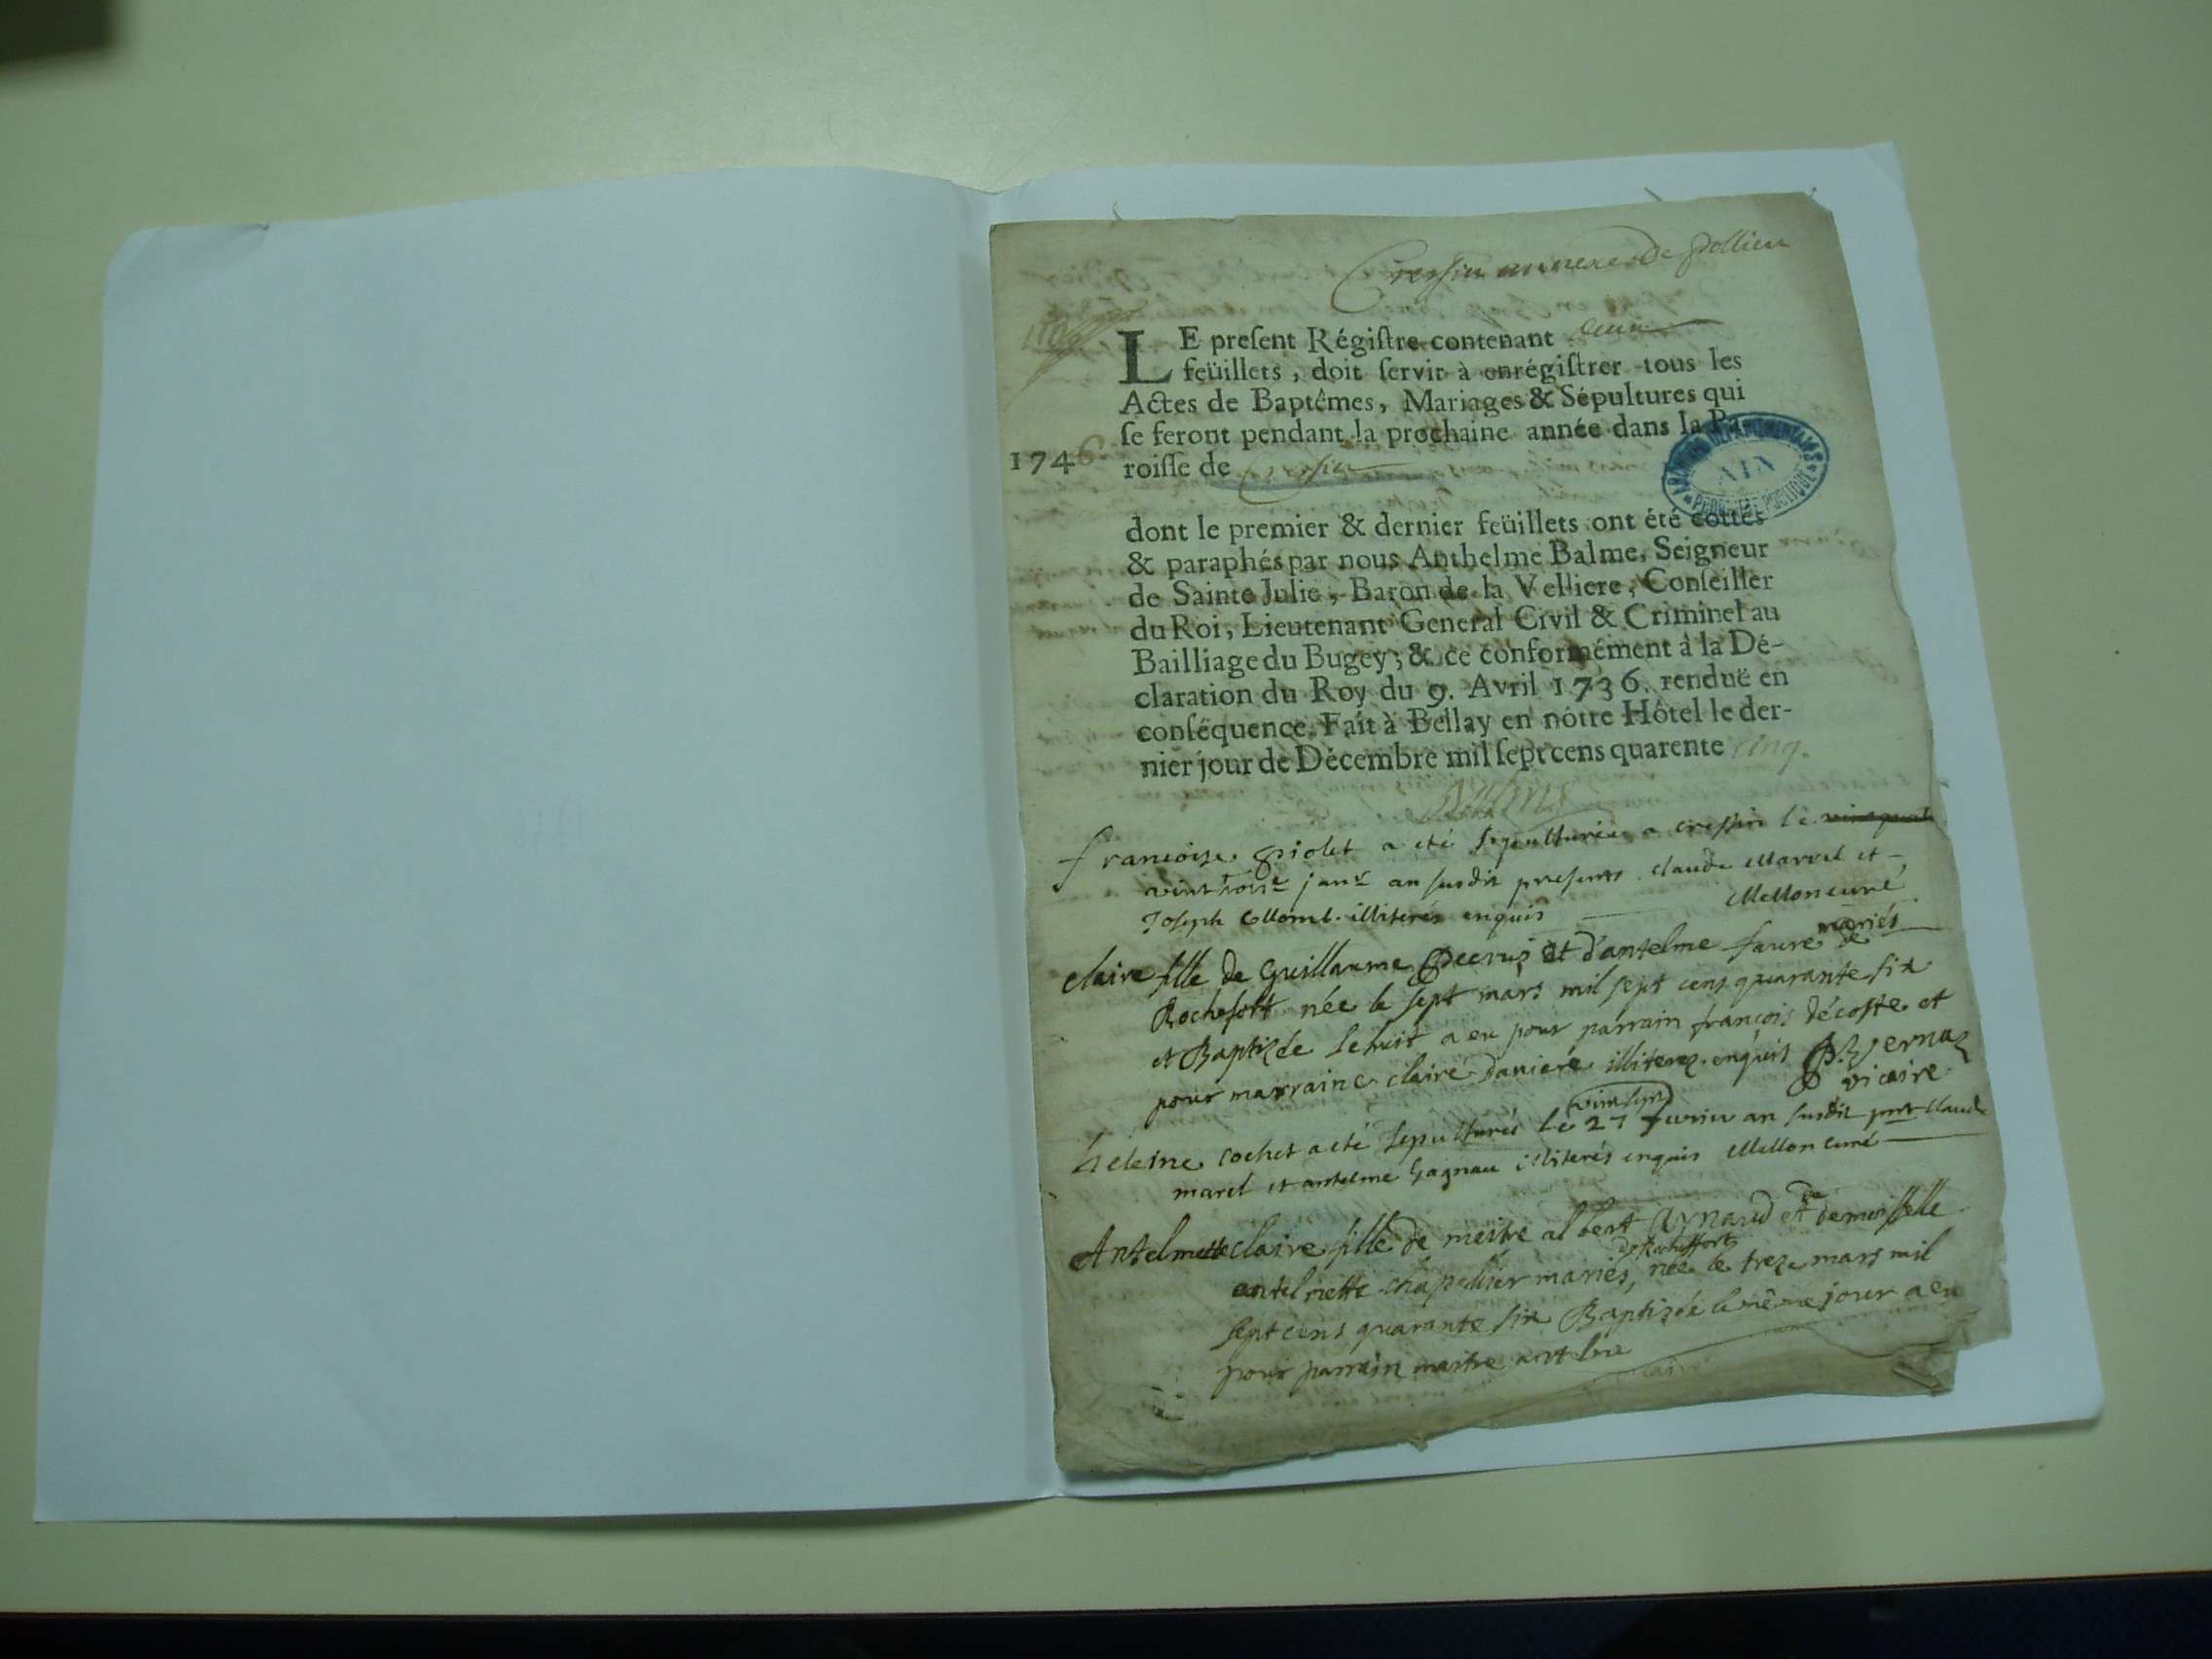 Cressin annexe de Pollieu
LE preſent Régiſtre contenant
feüillets, doit ſervir à enrégiſtrer tous les
Actes de Baptêmes, Mariages & Sépultures qui
ſe feront pendant la prochaine année dans la Pa-
1746 roiſſe de Cressin
ARCHIVES DEPARTEMENTALES
AIN
PROPRIETE PUBLIQUE
dont le premier & dernier feüillets ont été cottés
& paraphés par nous Anthelme Balme, Seigneur
de Sainte Julie, Baron de la Velliere, Conſeiller
du Roi, Lieutenant General Civil & Criminel au
Bailliage du Bugey; & ce conformément à la Dé-
claration du Roy du 9. Avril 1736. renduë en
conſéquence. Fait à Bellay en nôtre Hôtel le der-
nier jour de Décembre mil ſept cens quarente cinq.
francoise piolet a eté sepulturée a cressin le
vint troisr janr an susdit presents claude marvel et
Joseph Collomb. illiterés enquis Mellon curé
claire fille de Guillaume et d'antelme faure mariés de
Rochefort née le sept mars mil sept cens quarante six
et Baptizée le huit a eu pour parrain françois décoste et
pour marraine claire daniere illiterez enquis B. Vernaz
vicaire
heleine cochet a eté sepulturée le 27 vint sept fevrier an susdit prnt claude
marel et antelme Gagnau illiterés enquis Mellon curé
Antelmette claire fille de meitre albert Aynard et de demoisselle
antelmette chapellier mariés, de Rocheffort née le treze mars mil
sept cens quarante six Baptizée le même jour a eu
pour parrain maitre antelme